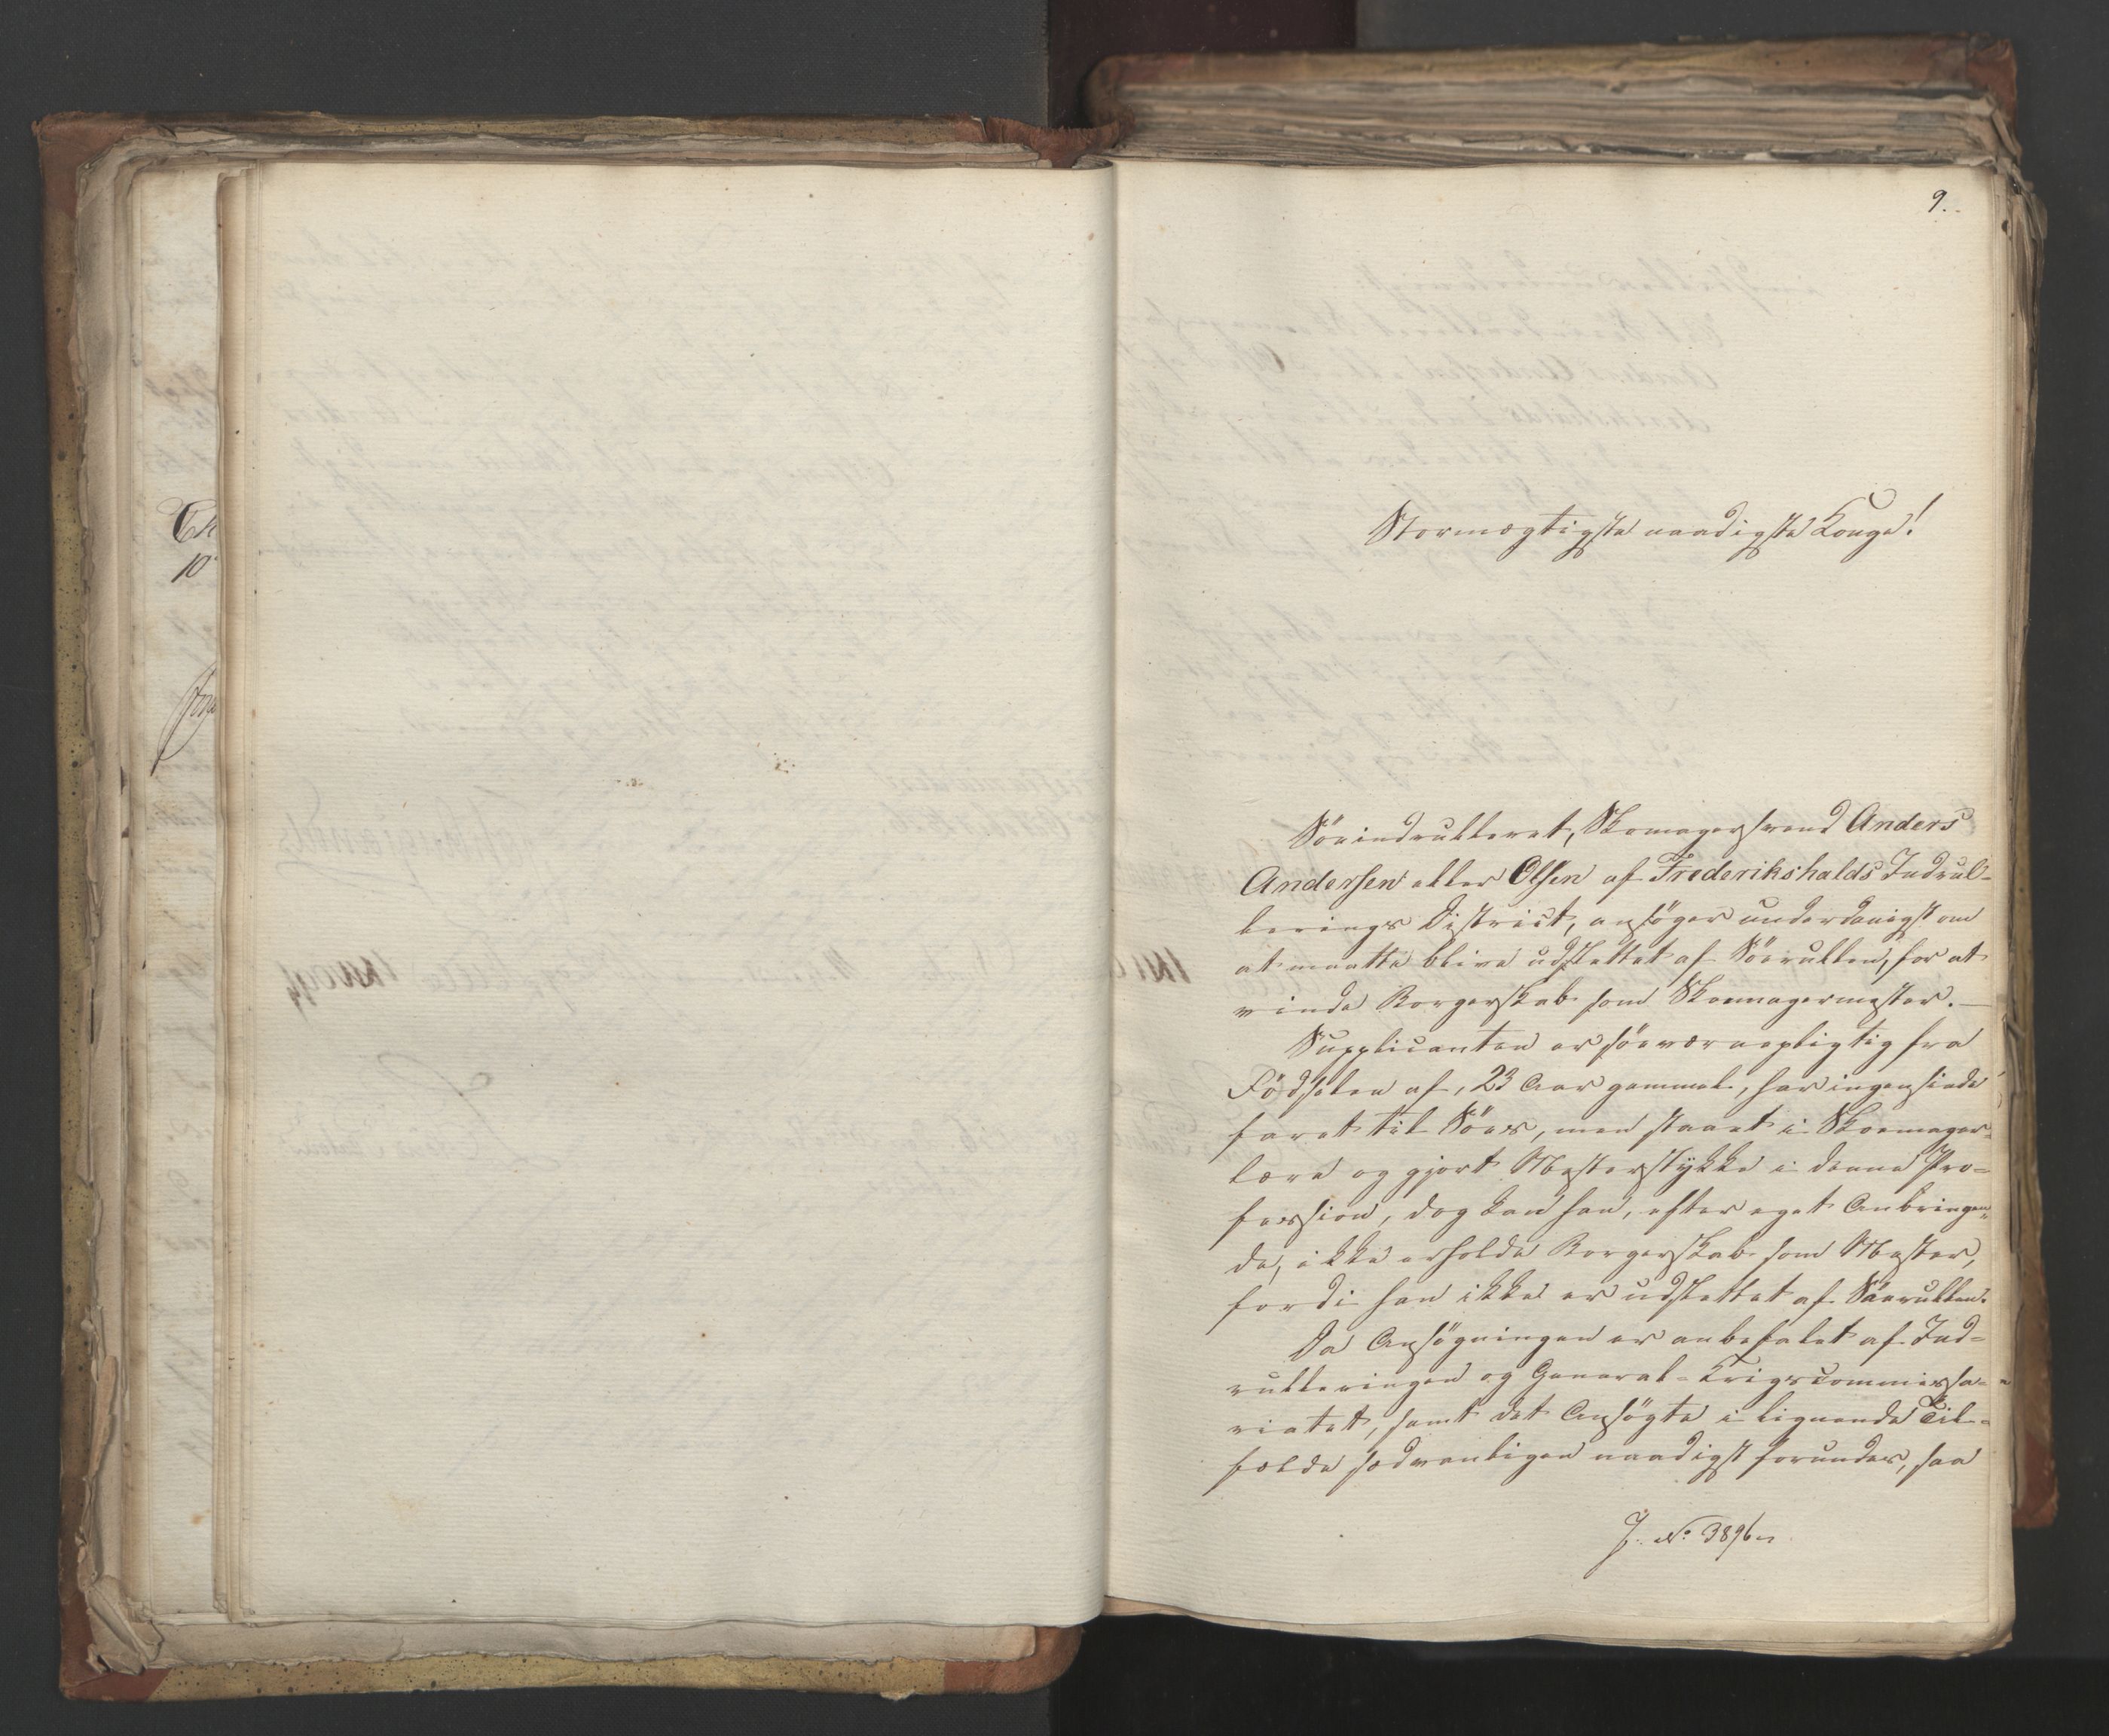 9.
Stormægtigste naadigste Konge!
Söeindrulleret, Skomagersvend Anders
Andersen eller Olsen af Frederikshalds Indrul-
lerings District, ansöger underdanigst om
at maatte blive udslettet af Söerullen, for at
vinde Borgerskab som Skoemagermester.-
Supplicanten er söeværnepligtig fra
Födselen af, 23 Aar gammel, har ingensinde
faret til Söes, men staaet i Skoemager-
lære og gjort Mesterstykke i denne Pro-
fession, dog kan han, efter eget Anbringen-
de, ikke erholde Borgerskab som Mester,
fordi han ikke er udslettet af Söerullen.
Da Ansögningen er anbefalet af Ind-
rulleringen og General-Krigscommissa-
riatet, samt det Ansögte i lignende Til-
fælde sædvanligen naadigst forundes, saa
J. No. 3896